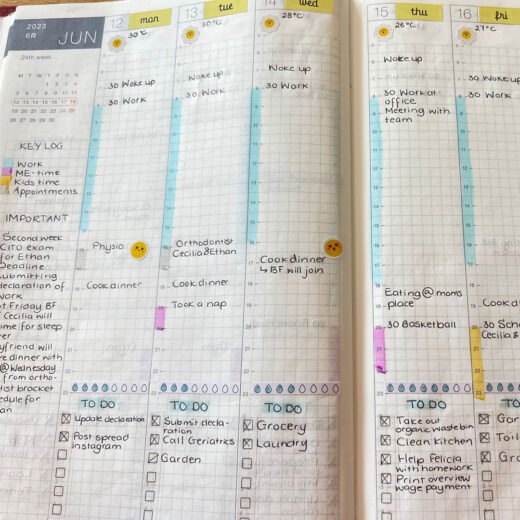 2023
6月
JUN
24th week
M T W T F S S
1 2 3 4
5 6 7 8 9 10 11
12 13 14 15 16 17 18
19 20 21 22 23 24 25
26 27 28 29 30
KEY LOG
Work
ME-time
Kids time
Appointments
IMPORTANT
Second week
CITO exam
for Ethan
Deadline
submitting
declaration of
work
Friday BF
Cecilia will
come for sleep
will
dinner with
@Wednesday
from ortho-
bracket
for
12 mon
30°C
30 Woke up
30 Work
Physio
Cook dinner
TO DO
Update declaration
Post spread
instagram
13 tue
30°C
Woke up
30 Work
Orthodontist
Cecilia&Ethan
Cook dinner
Took a nap
TO DO
Submit decla-
ration
Call Geriatrics
Garden
14 wed
28°C
Woke up
30 Work
Cook dinner
↳ BF will join
TO DO
Grocery
Laundry
15 thu
26°C
Woke up
30 Work at
office
Meeting with
team
Eating @ moms
place
30 Basketball
TO DO
Take out
organic waste bin
Clean kitchen
Help Felicia
with homework
Print overview
wage payment
16 fri
27°C
30 Woke up
30 Work
Cook
20
Cecilia &
TO